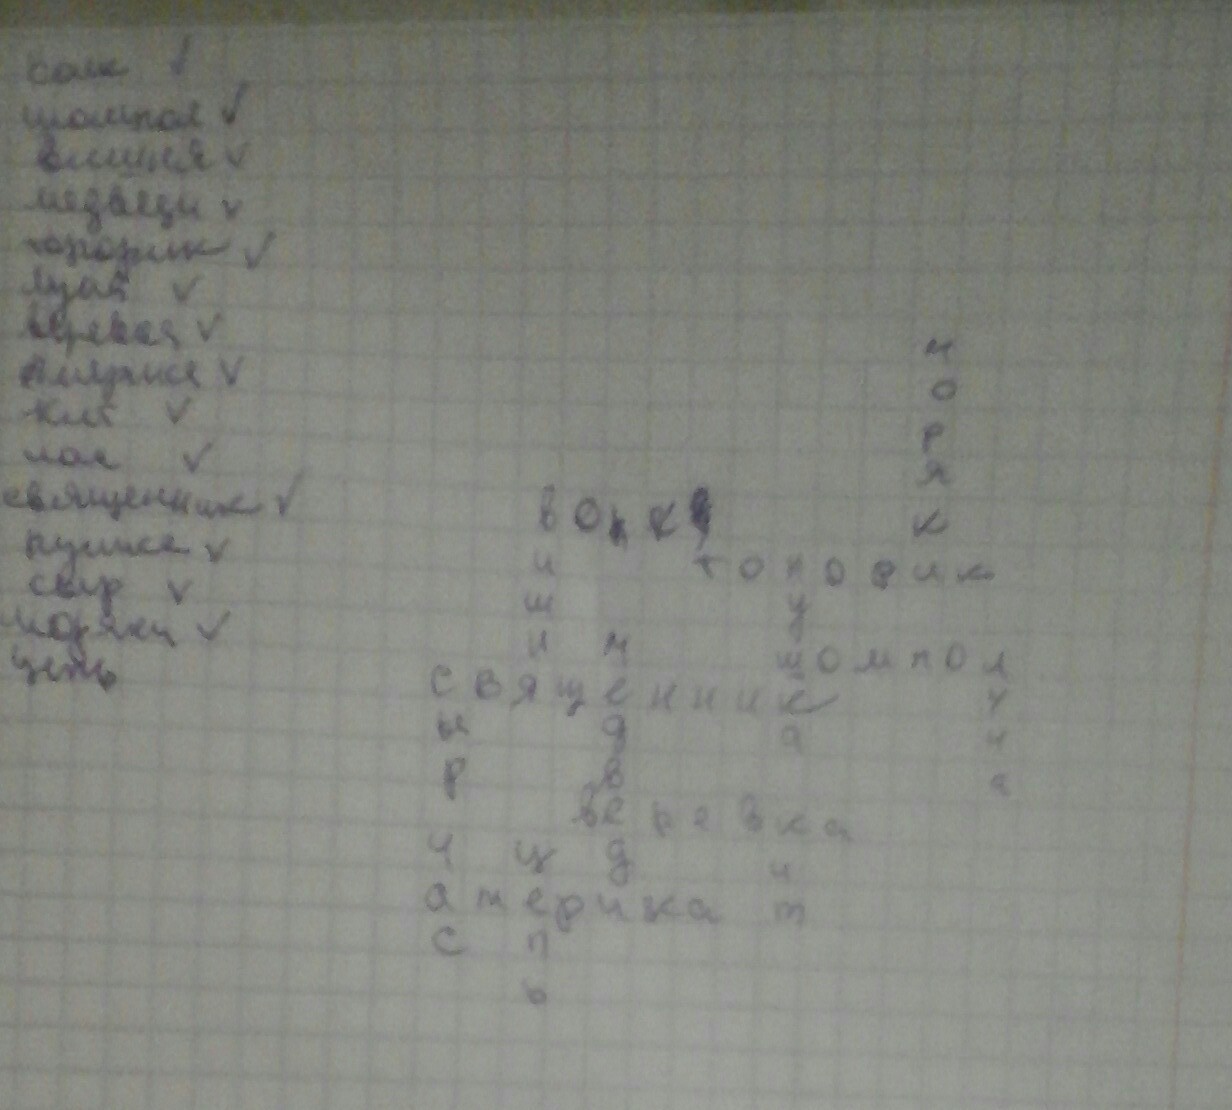 шомпол ✓
вишня ✓
медведи ✓
топорик ✓
веревка ✓
Америка ✓
кит ✓
священник ✓
пушка ✓
моряки ✓
цепь
м
о
р
я
к
в о л к
и т о п о р и к
ш у
н м ш о м п о л
с в я щ е н н и к у
ы д а н
р в а
в е р е в к а
ч ц д и
а м е р и к а т
с п
ь